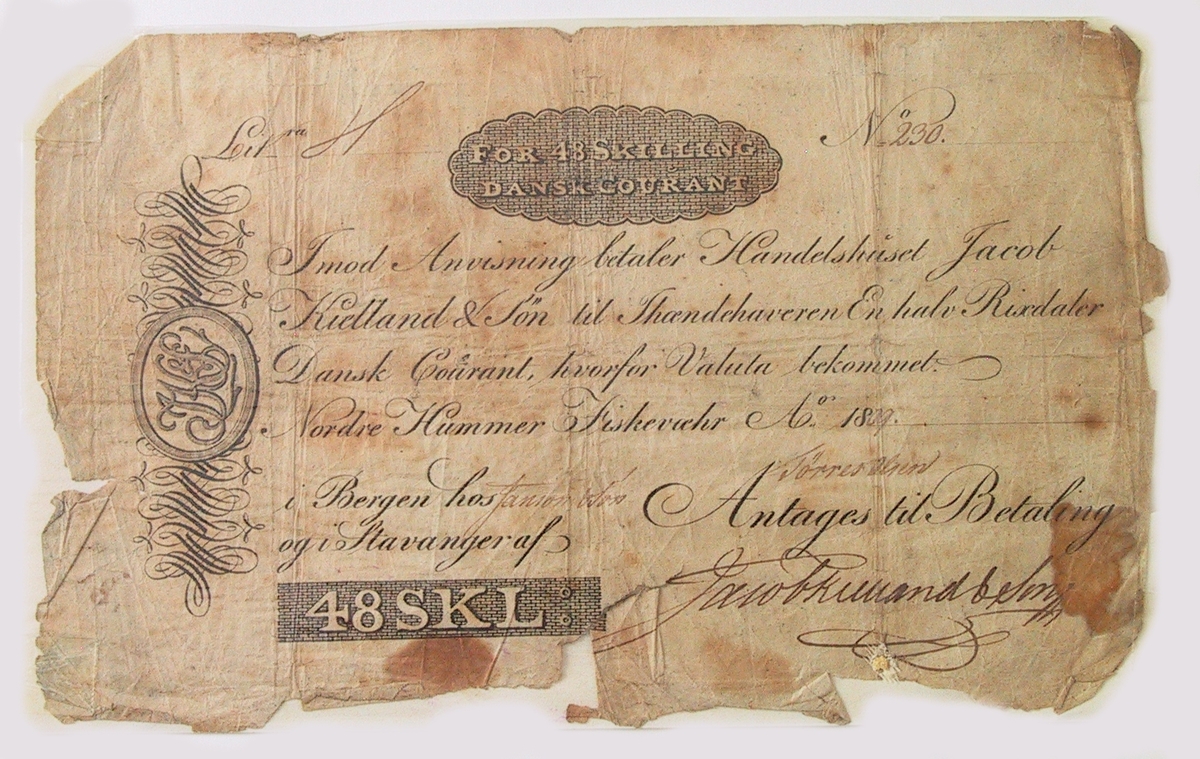 Lit.ra H
No 230.
FOR 48 SKILLING
DANSK COURANT
Imod Anvisning betaler Handelshuset Jacob
Kielland & Sön til Ihændehaveren En halv Rixdaler
Dansk Courant, hvorfor Valuta bekommet.
Nordre Hummer Fiskevæhr Ao. 1809.
i Bergen hos
og i Stavanger af
Antages til Betaling
Jacob Kielland & Søn
48 SKL: